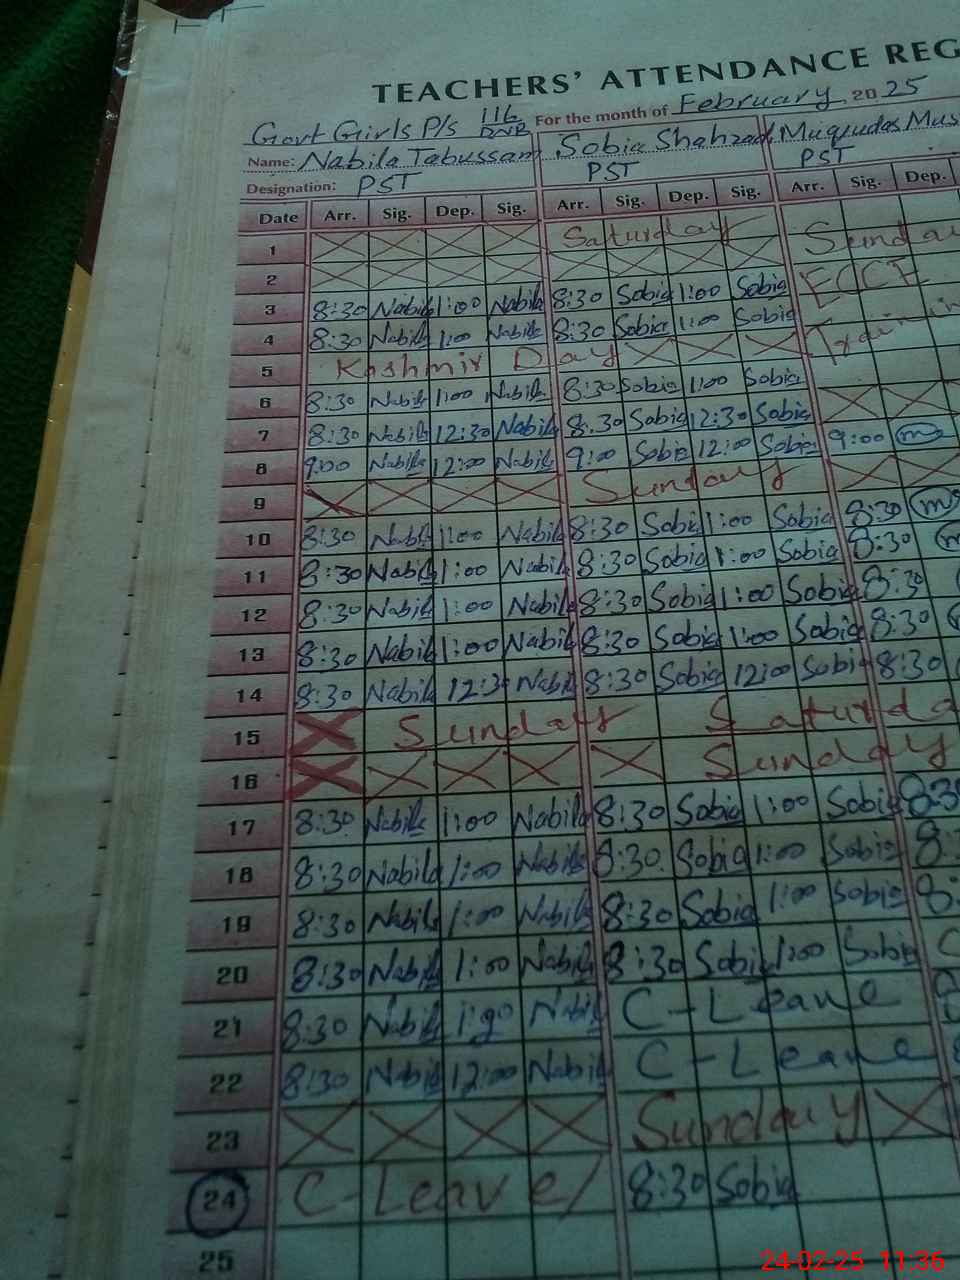 TEACHERS' ATTENDANCE REG
Govt Girls P/s 116 DNB For the month of February 2025
Name: Nabila Tabussam Sobia Shahzad Muqudas Mus
Designation: PST PST PST
Date Arr. Sig. Dep. Sig. Arr. Sig. Dep. Sig. Arr. Sig. Dep.
1 Saturday Sunda
2 ECCE
3 8:30 Nabila 1:00 Nabila 8:30 Sobia 1:00 Sobia
4 8:30 Nabila 1:00 Nabila 8:30 Sobia 1:00 Sobia Trainin
5 Kashmir Day
6 8:30 Nabila 1:00 Nabila 8:30 Sobia 1:00 Sobia
7 8:30 Nabila 12:30 Nabila 8:30 Sobia 12:30 Sobia
8 9:00 Nabila 12:00 Nabila 9:00 Sobia 12:00 Sobia 9:00
9 Sunday
10 8:30 Nabila 1:00 Nabila 8:30 Sobia 1:00 Sobia 8:30
11 8:30 Nabila 1:00 Nabila 8:30 Sobia 1:00 Sobia 8:30
12 8:30 Nabila 1:00 Nabila 8:30 Sobia 1:00 Sobia 8:30
13 8:30 Nabila 1:00 Nabila 8:30 Sobia 1:00 Sobia 8:30
14 8:30 Nabila 12:3 Nabila 8:30 Sobia 12:00 Sobia 8:30
15 Sunday Saturda
16 Sunday
17 8:30 Nabila 1:00 Nabila 8:30 Sobia 1:00 Sobia 8:30
18 8:30 Nabila 1:00 Nabila 8:30 Sobia 1:00 Sobia 8:
19 8:30 Nabila 1:00 Nabila 8:30 Sobia 1:00 Sobia 8:
20 8:30 Nabila 1:00 Nabila 8:30 Sobia 1:00 Sobia C
21 8:30 Nabila 1:00 Nabila C-Leave
22 8:30 Nabila 12:00 Nabila C-Leave
23 Sunday
24 C-Leave 8:30 Sobia
25
24-02-25 11:36